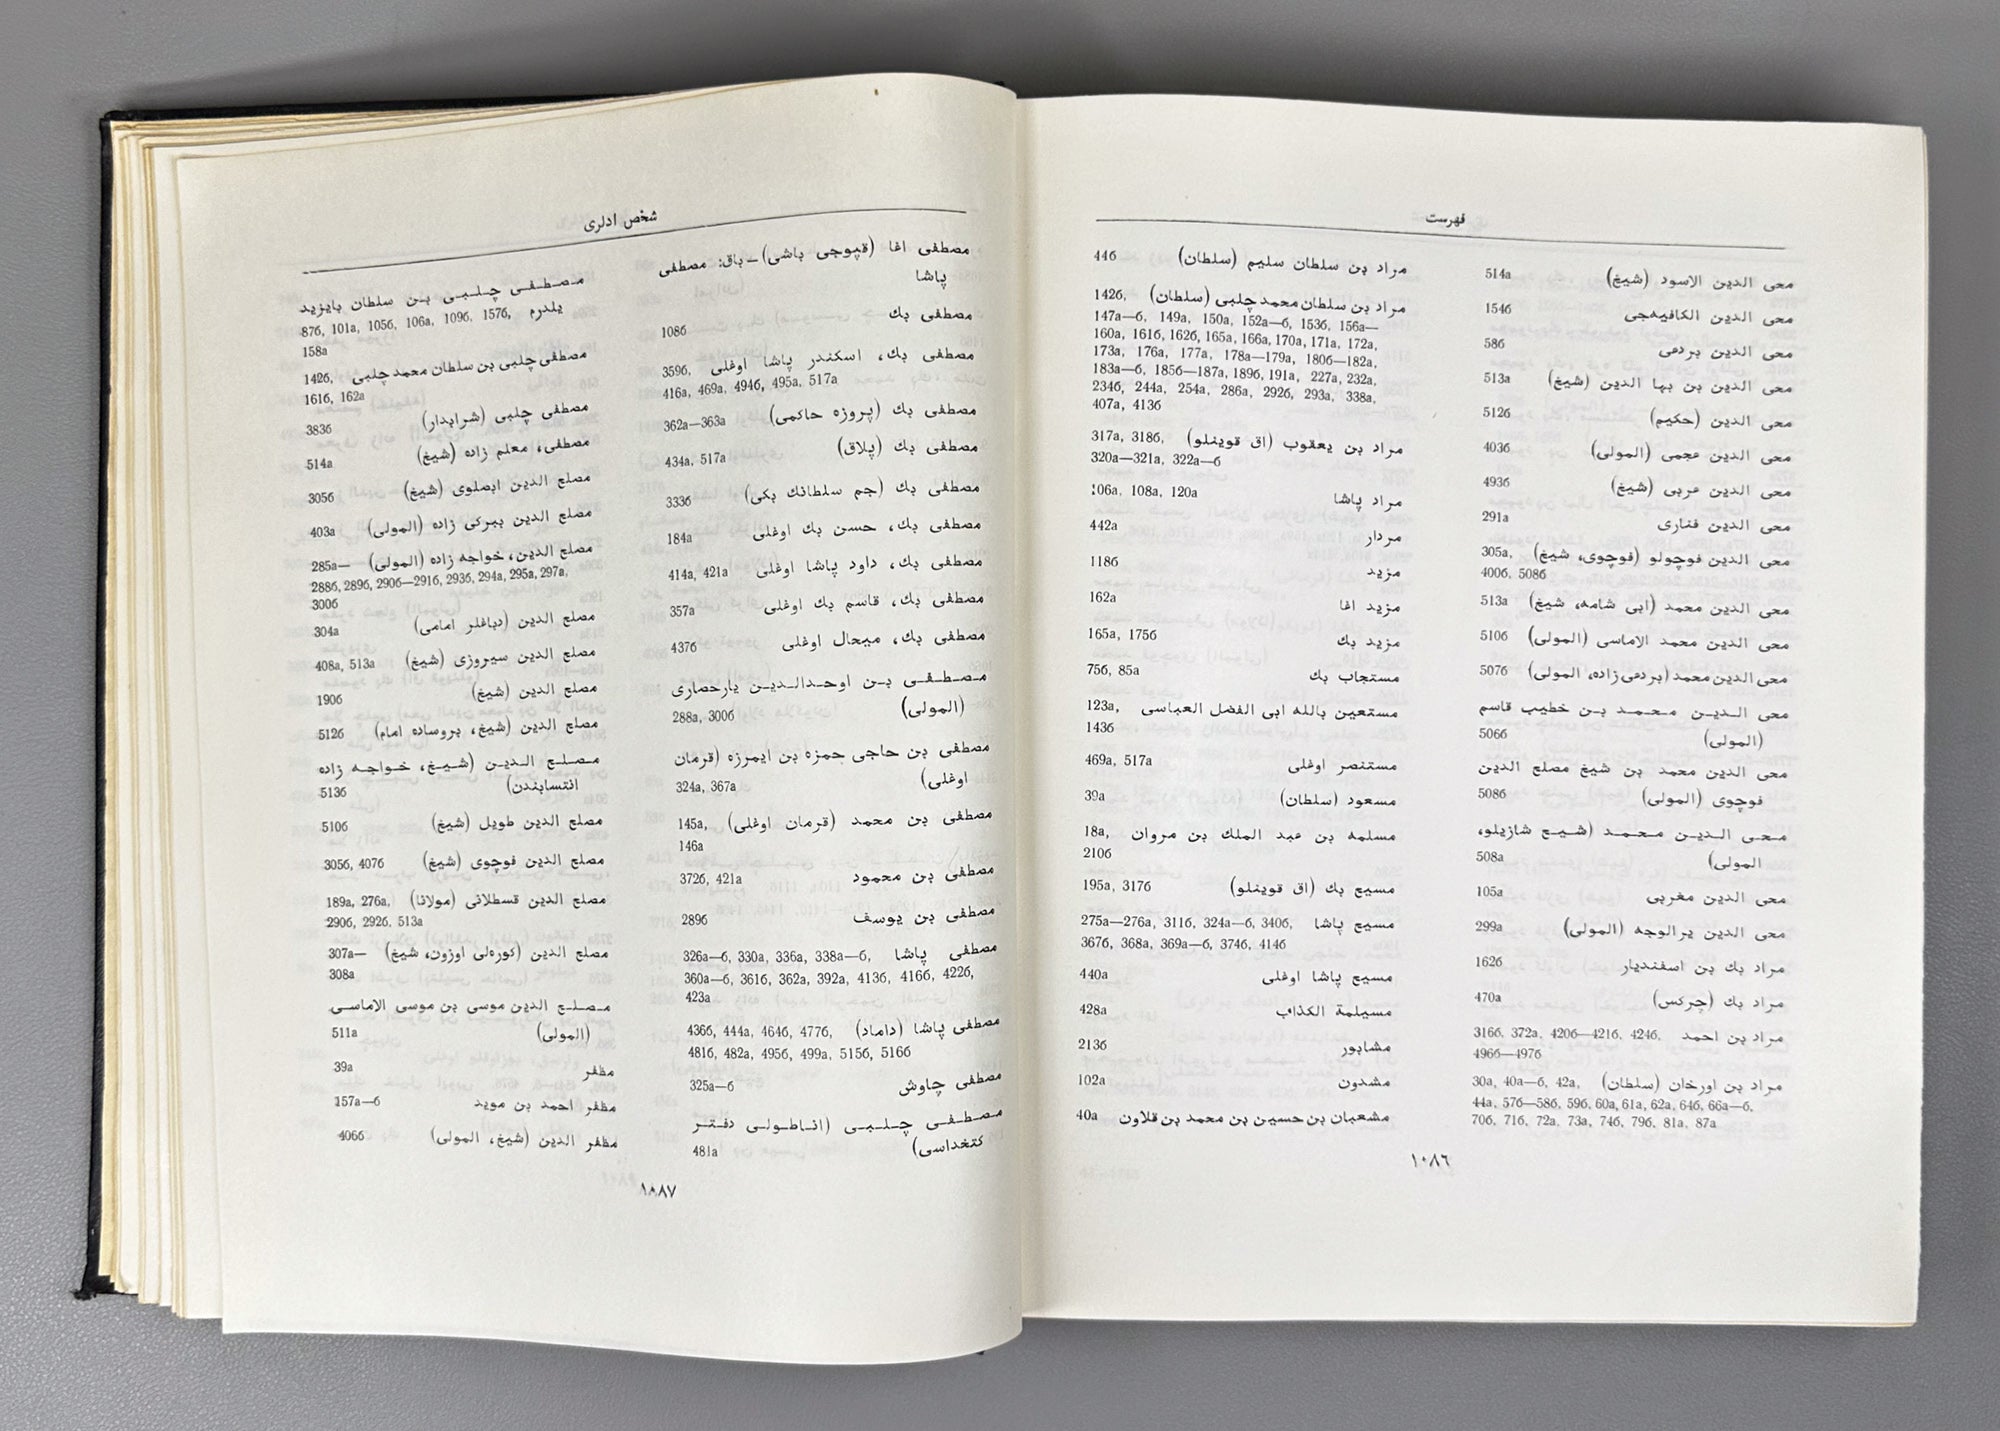 فهرست
محى الدين الاسود (شيخ) 514a
محى الدين الكافيه‌جى 154б
محى الدين بردعى 58б
محى الدين بن بها الدين (شيخ) 513a
محى الدين (حكيم) 512б
محى الدين عجمى (المولى) 403б
محى الدين عربى (شيخ) 493б
محى الدين فنارى 291a
محى الدين قوچولو (قوچوى، شيخ) 305a,
400б, 508б
محى الدين محمد (ابى شامه، شيخ) 513a
محى الدين محمد الاماسى (المولى) 510б
محى الدين محمد (بردعى زاده، المولى) 507б
محى الدين محمد بن خطيب قاسم
(المولى) 506б
محى الدين محمد بن شيخ مصلح الدين
قوچوى (المولى) 508б
محى الدين محمد (شيخ شازيلو،
المولى) 508a
محى الدين مغربى 105a
محى الدين يرالوجه (المولى) 299a
مراد بك بن اسفنديار 162б
مراد بك (چركس) 470a
مراد بن احمد 316б, 372a, 420б—421б, 424б,
496б—497б
مراد بن اورخان (سلطان) 30a, 40a—б, 42a,
44a, 57б—58б, 59б, 60a, 61a, 62a, 64б, 66a—б,
70б, 71б, 72a, 73a, 74б, 79б, 81a, 87a
مراد بن سلطان سليم (سلطان) 44б
مراد بن سلطان محمد چلبى (سلطان) 142б,
147a—б, 149a, 150a, 152a—б, 153б, 156a—
160a, 161б, 162б, 165a, 166a, 170a, 171a, 172a,
173a, 176a, 177a, 178a—179a, 180б—182a,
183a—б, 185б—187a, 189б, 191a, 227a, 232a,
234б, 244a, 254a, 286a, 292б, 293a, 338a,
407a, 413б
مراد بن يعقوب (اق قوينلو) 317a, 318б,
320a—321a, 322a—б
مراد پاشا 106a, 108a, 120a
مردار 442a
مزيد 118б
مزيد اغا 162a
مزيد بك 165a, 175б
مستجاب بك 75б, 85a
مستعين بالله ابى الفضل العباسى 123a,
143б
مستنصر اوغلى 469a, 517a
مسعود (سلطان) 39a
مسلمه بن عبد الملك بن مروان 18a,
210б
مسيح بك (اق قوينلو) 195a, 317б
مسيح پاشا 275a—276a, 311б, 324a—б, 340б,
367б, 368a, 369a—б, 374б, 414б
مسيح پاشا اوغلى 440a
مسيلمة الكذاب 428a
مشاپور 213б
مشدون 102a
مشعبان بن حسين بن محمد بن قلاون 40a
١٠٨٦
شخص ادلرى
مصطفى اغا (قپوجى باشى) – باق: مصطفى
پاشا
مصطفى بك 108б
مصطفى بك، اسكندر پاشا اوغلى 359б,
416a, 469a, 494б, 495a, 517a
مصطفى بك (پروزه حاكمى) 362a—363a
مصطفى بك (پلاق) 434a, 517a
مصطفى بك (جم سلطانك بكى) 333б
مصطفى بك، حسن بك اوغلى 184a
مصطفى بك، داود پاشا اوغلى 414a, 421a
مصطفى بك، قاسم بك اوغلى 357a
مصطفى بك، ميحال اوغلى 437б
مصطفى بن اوحدالدين يارحصارى
(المولى) 288a, 300б
مصطفى بن حاجى حمزه بن ايمرزه (قرمان
اوغلى) 324a, 367a
مصطفى بن محمد (قرمان اوغلى) 145a,
146a
مصطفى بن محمود 372б, 421a
مصطفى بن يوسف 289б
مصطفى پاشا 326a—б, 330a, 336a, 338a—б,
360a—б, 361б, 362a, 392a, 413б, 416б, 422б,
423a
مصطفى پاشا (داماد) 436б, 444a, 464б, 477б,
481б, 482a, 495б, 499a, 515б, 516б
مصطفى چاوش 325a—б
مصطفى چلبى (اناطولى دفتر
كتخداسى) 481a
مصطفى چلبى بن سلطان بايزيد
يلدرم 87б, 101a, 105б, 106a, 109б, 157б,
158a
مصطفى چلبى بن سلطان محمد چلبى 142б,
161б, 162a
مصطفى چلبى (شرابدار) 383б
مصطفى، معلم زاده (شيخ) 514a
مصلح الدين ابصلوى (شيخ) 305б
مصلح الدين ببركى زاده (المولى) 403a
مصلح الدين، خواجه زاده (المولى) 285a—
288б, 289б, 290б—291б, 293б, 294a, 295a, 297a,
300б
مصلح الدين (دباغلر امامى) 304a
مصلح الدين سيروزى (شيخ) 408a, 513a
مصلح الدين (شيخ) 190б
مصلح الدين (شيخ، بروساده امام) 512б
مصلح الدين (شيخ، خواجه زاده
انتسابندن) 513б
مصلح الدين طويل (شيخ) 510б
مصلح الدين قوچوى (شيخ) 305б, 407б
مصلح الدين قسطلانى (مولانا) 189a, 276a,
290б, 292б, 513a
مصلح الدين (كوره‌لى اوزون، شيخ) 307a—
308a
مصلح الدين موسى بن موسى الاماسى
(المولى) 511a
مظفر 39a
مظفر احمد بن مويد 157a—б
مظفر الدين (شيخ، المولى) 406б
١٠٨٧